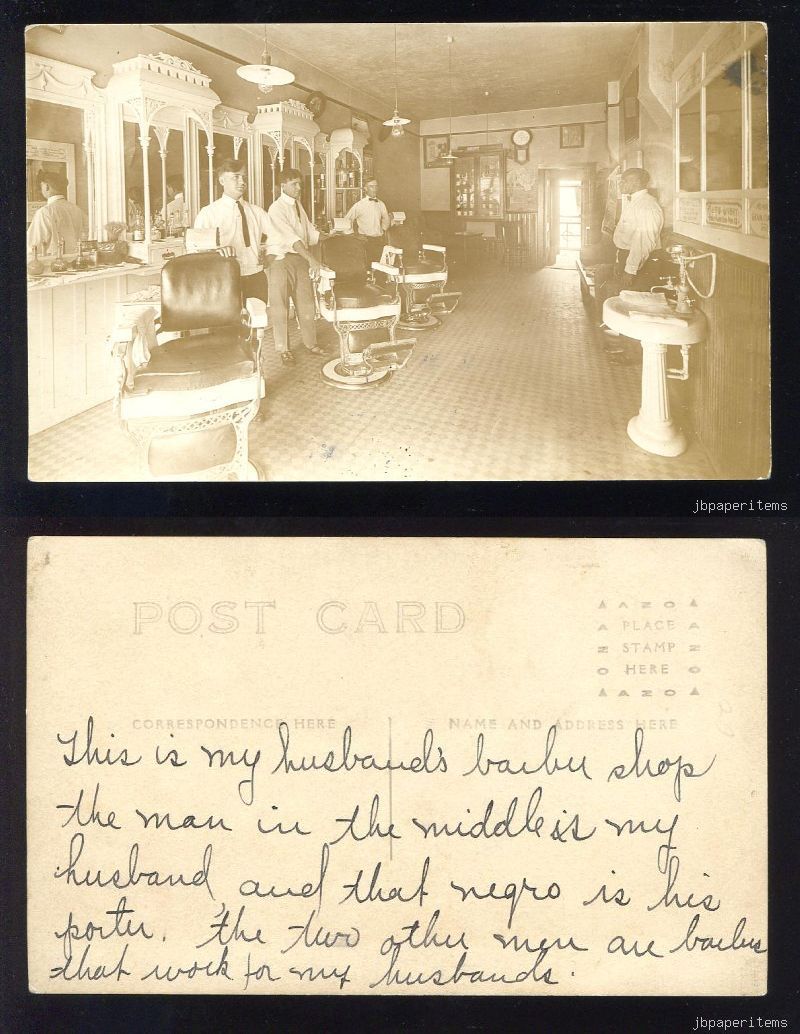 jbpaperitems
POST CARD
AZO
PLACE
STAMP
HERE
AZO
CORRESPONDENCE HERE
NAME AND ADDRESS HERE
This is my husband's barber shop
the man in the middle is my
husband, and that negro is his
porter. The two other men are barbers
that work for my husbands.
jbpaperitems